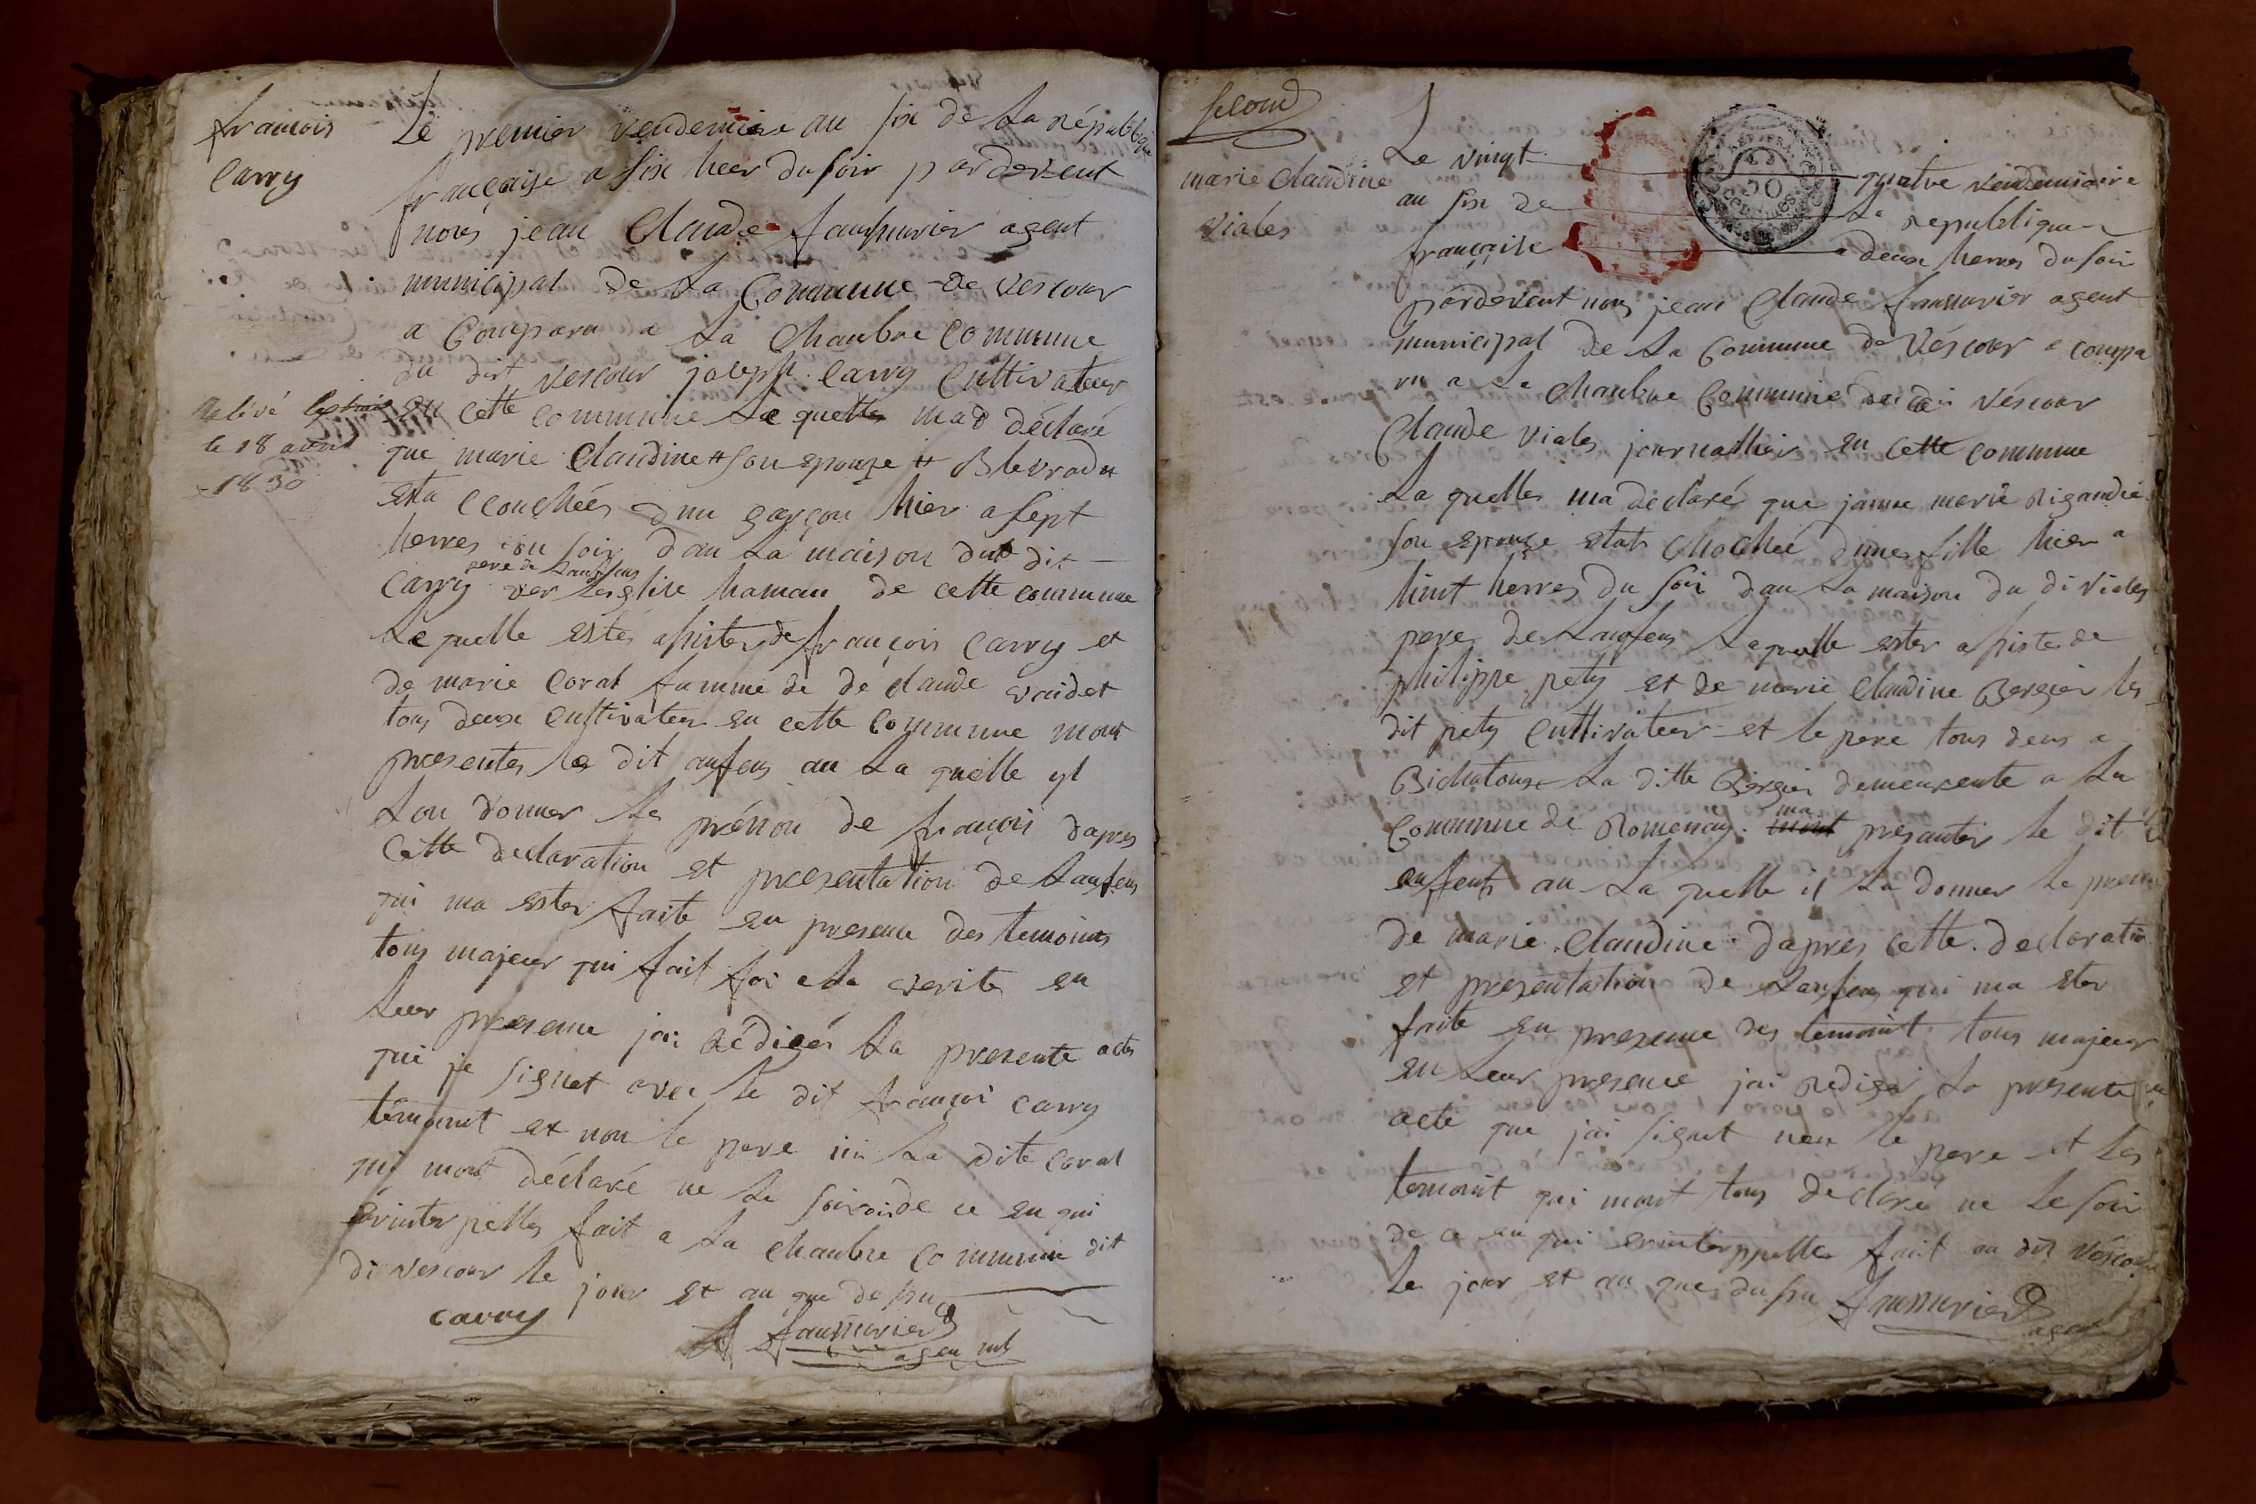 francois
Carry
Le premier vendemiere au six de la république
française a six heer du soir pardevent
nous jean Claude faussurier agent
municipal de la Commune de vescour
a Comparu a la Chanbre Commune
du dit vescour joseph Carry Cultivateur
relivé
le 18 avril
1830
en cette commune La quelle ma déclaré
que marie Claudine # son epouze #
esta ccouchées dun garçon hier a sept
herres du soir dan la maison du dit
pere de lanfens
Carry ver leglise hamau de cette commune
Le quelle estes asister de françois Carry et
de marie Coral famme de de claude vaidet
tous deux Cultivateur en cette Commune mont
presenter le dit anfens au la quelle yl
Lon donner le prénon de françois dapres
Cette declaration et presentation de Lanfens
qui ma ester faite en presence des temoint
tous majeur qui fait foi a la verite en
Leur presence jai rédigér la presente acte
que je signet avec le dit françoi carry
témoint et non le pere nin la dite Coral
qui mont déclaré ne le savoir de ce en qui
érinterpelles fait a la chanbre commune dit
di vescour le jour et an que desu
carry
faussurier
agen ml
second
marie Claudine
viales
Le vingt quatre vendemiaire
an six de la republique
française a deux herres du soir
50
pardevent nous jean Claude faussurier agent
municipal de la Commune de véscour a compa
ru a La Chanbre Commune du di véscour
Claude viales journallier en Cette commune
La quelles ma déclaré que janne marie Rigaudié
son epouze estats chochée dunes fille hier a
huit herres du soir dan la maison du di viales
peres de Lanfens Laquelle ester asistes de
philippe pety et de marie Claudine Bergier les
dit pety Cultivateur et le pere tous deus a
La ditte Bergier demeurente a la
ma
Commune de Romenay mont présanter le dit
enfent au La quelle il la donner le prenon
de marie Claudine dapres cette declaration
et presentation de Lanfens qui ma ester
faite en presence des temoint tous majeur
en Leur presence jai rediger la presente
acte que jai signet non le pere et les
temoint qui mont tous declaré ne le soir
de ce en qui erinterppelles fait au dit véscour
le jour et an que dusu faussurier
agent